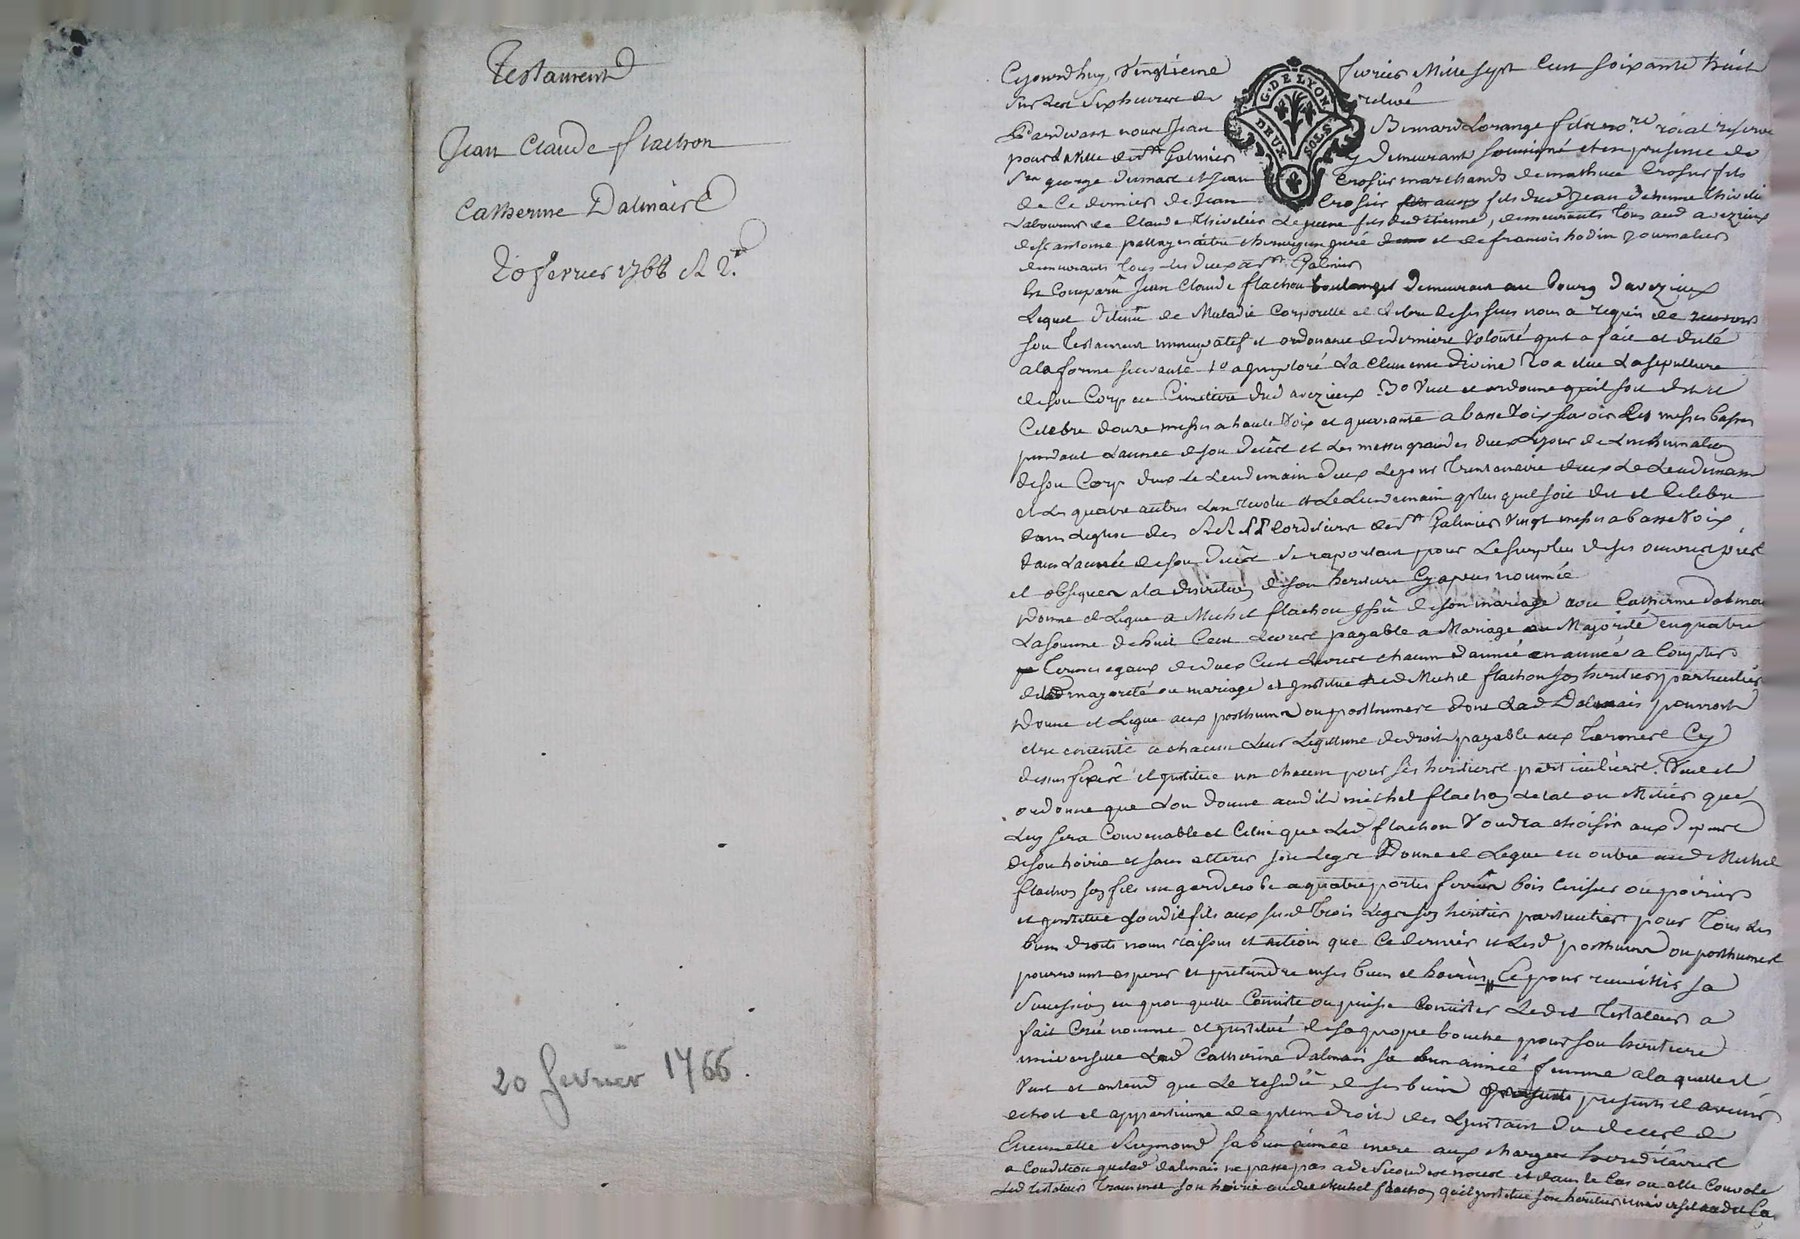 Testament
Jean Claude flachon
Catherine Dalmaise
20 fevrier 1766 et 2.
20 fevrier 1766.
G. DE LYON
DEUX SOLS
Cejourdhuy vingtieme fevrier Mille sept cent soixante huit
sur les six heures de relevé
Pardevant nous Jean Bernard Lorange no.re roial reservé
pour la ville de st Galmier y demeurant soussigné et en presence de
sr george et Jean Crosier marchands de mathieu Crosier fils
de Ce dernier de Jean Crosier aussy fils dud Jean
Laboureur de Claude Thivelier Le jeune fils dud etienne, demeurants Tous aud avezieux
de sr antoine me chirurgien juré et de francois hodin journalier
demeurants Tous les deux a st Galmier
Est Comparu Jean Claude flachon boulanger demeurant au bourg davezieux
Lequel detenu de Maladie Corporelle et Libre de ses sens nous a requis de recevoir
son Testament nuncupatif et ordonance de derniere volonté quil a fait et dicté
a la forme suivante 1o a imploré La clemence divine 2o a elue La sepulture
de son Corp au Cimetiere dud avezieux 3o Veut et ordonne quil soit dit et
Celebré douze messes a haute Voix et quarante a basse Voix scavoir Les messes basses
pendant Lannée de son deces et Les messes grandes deux Le jour de Linhumation
de son Corp deux Le Lendemain deux Le jour Trentenaire deux Le Lendemain
et Les quatre autres Lan revolu et Le Lendemain plus quil soit dit et Celebré
dans Leglise des Cordeliers de st Galmier Vingt messes a basse Voix
dans Lannée de son deces se raportant pour Le surplus de ses oeuvres pies
et obseques a la discretion de son heritiere Cy apres nommée
Donne et Legue a Michel flachon issu de son mariage avec Catherine dalmais
La somme de huit Cent Livres payable a Mariage ou Majorité en quatre
Termes egaux de deux Cent Livres chacun dannée en année a Compter
de lad majorité ou mariage et institue led Michel flachon son heritier particulier
Donne et Legue aux posthume ou posthumes dont Lad Dalmais pourroit
etre enceinte a chacun Leur Legitime de droit payable aux Termes Cy
dessus fixés et institue un chacun pour ses heritiers particuliers. Veut et
ordonne que Lon donne audit michel flachon Letat ou Metier que
Luy sera Convenable et Celui que Led flachon Voudra choisir aux depens
de son hoirie et sans alterer son Legs Donne et Legue en outre aud Michel
flachon son fils un garderobe a quatre portes ferrées bois cerisier ou poirier
et institue Lordit fils aux susd Trois Legs son heritier particulier pour Tous Les
biens droits noms raisons et actions que Ce dernier et Lesd posthume ou posthumes
pourront esperer et pretendre en ses biens et hoirie, Et pour recueillir sa
Succession en quoi quelle Consiste ou puisse Consister Ledit Testateur a
fait Créé nommé et institué de sa propre bouche pour son heritiere
universelle Lad Catherine Dalmais sa bien aimée femme a laquelle il
Veut et entend que Le residu de ses biens presents et avenir
echoit et appartienne de plein droit des Linstant du deces de
Reymond sa bien aimée mere aux charges hereditaires
a Condition que Lad dalmais ne passe pas a de Secondes noces et dans le Cas ou elle Convole
Led testateur Transmet son hoirie aud Michel flachon quil institue son heritier universel